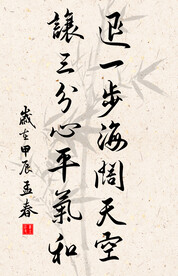 退一步海闊天空
讓三分心平氣和
歲在甲辰孟春